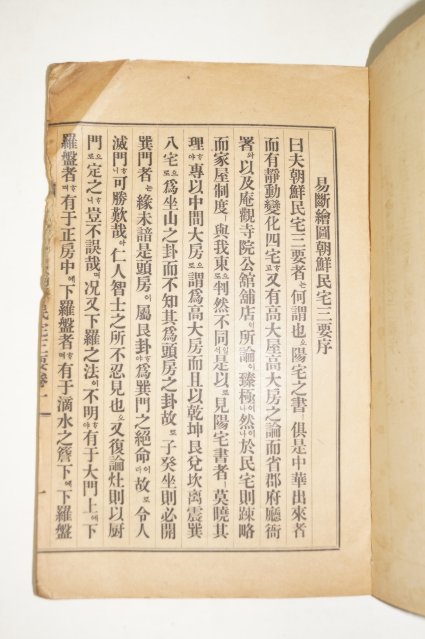 易斷繪圖朝鮮民宅三要序
曰夫朝鮮民宅三要者는何謂也오陽宅之書ㅣ俱是中華出來者
而有靜動變化四宅하고又有高大屋高大房之論而省郡府廳衙
署와以及庵觀寺院公舘舖店이所論이臻極이나然이나於民宅則踈略
而家屋制度ㅣ與我東으로判然不同일새是以로見陽宅書者ㅣ莫曉其
理하야專以中間大房으로謂爲高大房而且以乾坤艮兌坎离震巽
八宅으로爲坐山之卦而不知其爲頭房之卦故로子癸坐則必開
巽門者는緣未諳是頭房이屬艮卦하야爲巽門之絕命이라故로令人
滅門하니可勝歎哉아仁人智士之所不忍見也오又復論灶則以厨
門으로定之하니豈不誤哉며况又下羅之法이不明하야有于大門上에下
羅盤者하며有于正房中에下羅盤者하며有于滴水之簷下에下羅盤
民宅三要卷一
一